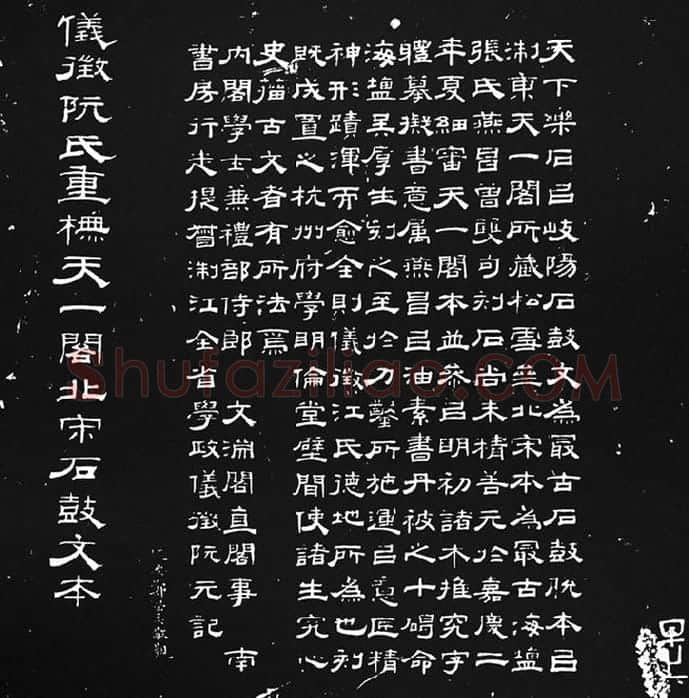 天下樂石㠯岐陽石鼓文為最古石鼓脫本㠯
浙東天一閣所藏松雪北宋本為最古海鹽
張氏燕昌曾雙句刻石尚未精善元於嘉慶二
年夏細審天一閣本並參㠯明初諸本推究字
體摹擬書意屬燕昌㠯油素書丹被之十碣命
海鹽吳厚生刻之至於刀鑿所施運㠯意匠精
神形蹟渾而愈全則儀徵江氏德地所為也刻
既成置之杭州府學明倫堂壁間使諸生究心
史籀古文者有所法焉
內閣學士兼禮部侍郎 文淵閣直閣事 南
書房行走提督浙江全省學政儀徵阮元記
儀徵阮氏重橅天一閣北宋石鼓文本
Shufaziliao.COM